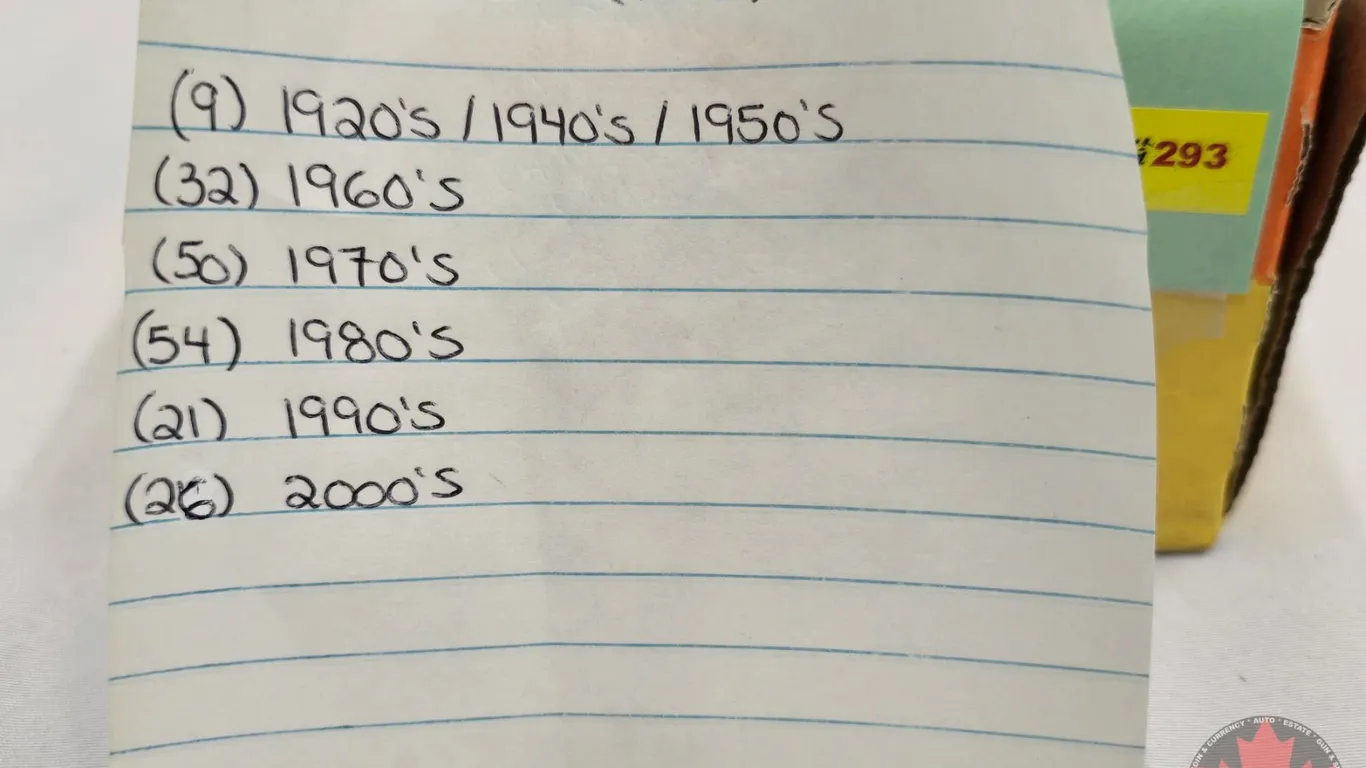 (9) 1920's / 1940's / 1950's
(32) 1960's
(50) 1970's
(54) 1980's
(21) 1990's
(26) 2000's
#293
COIN & CURRENCY · AUTO · ESTATE · GUN &